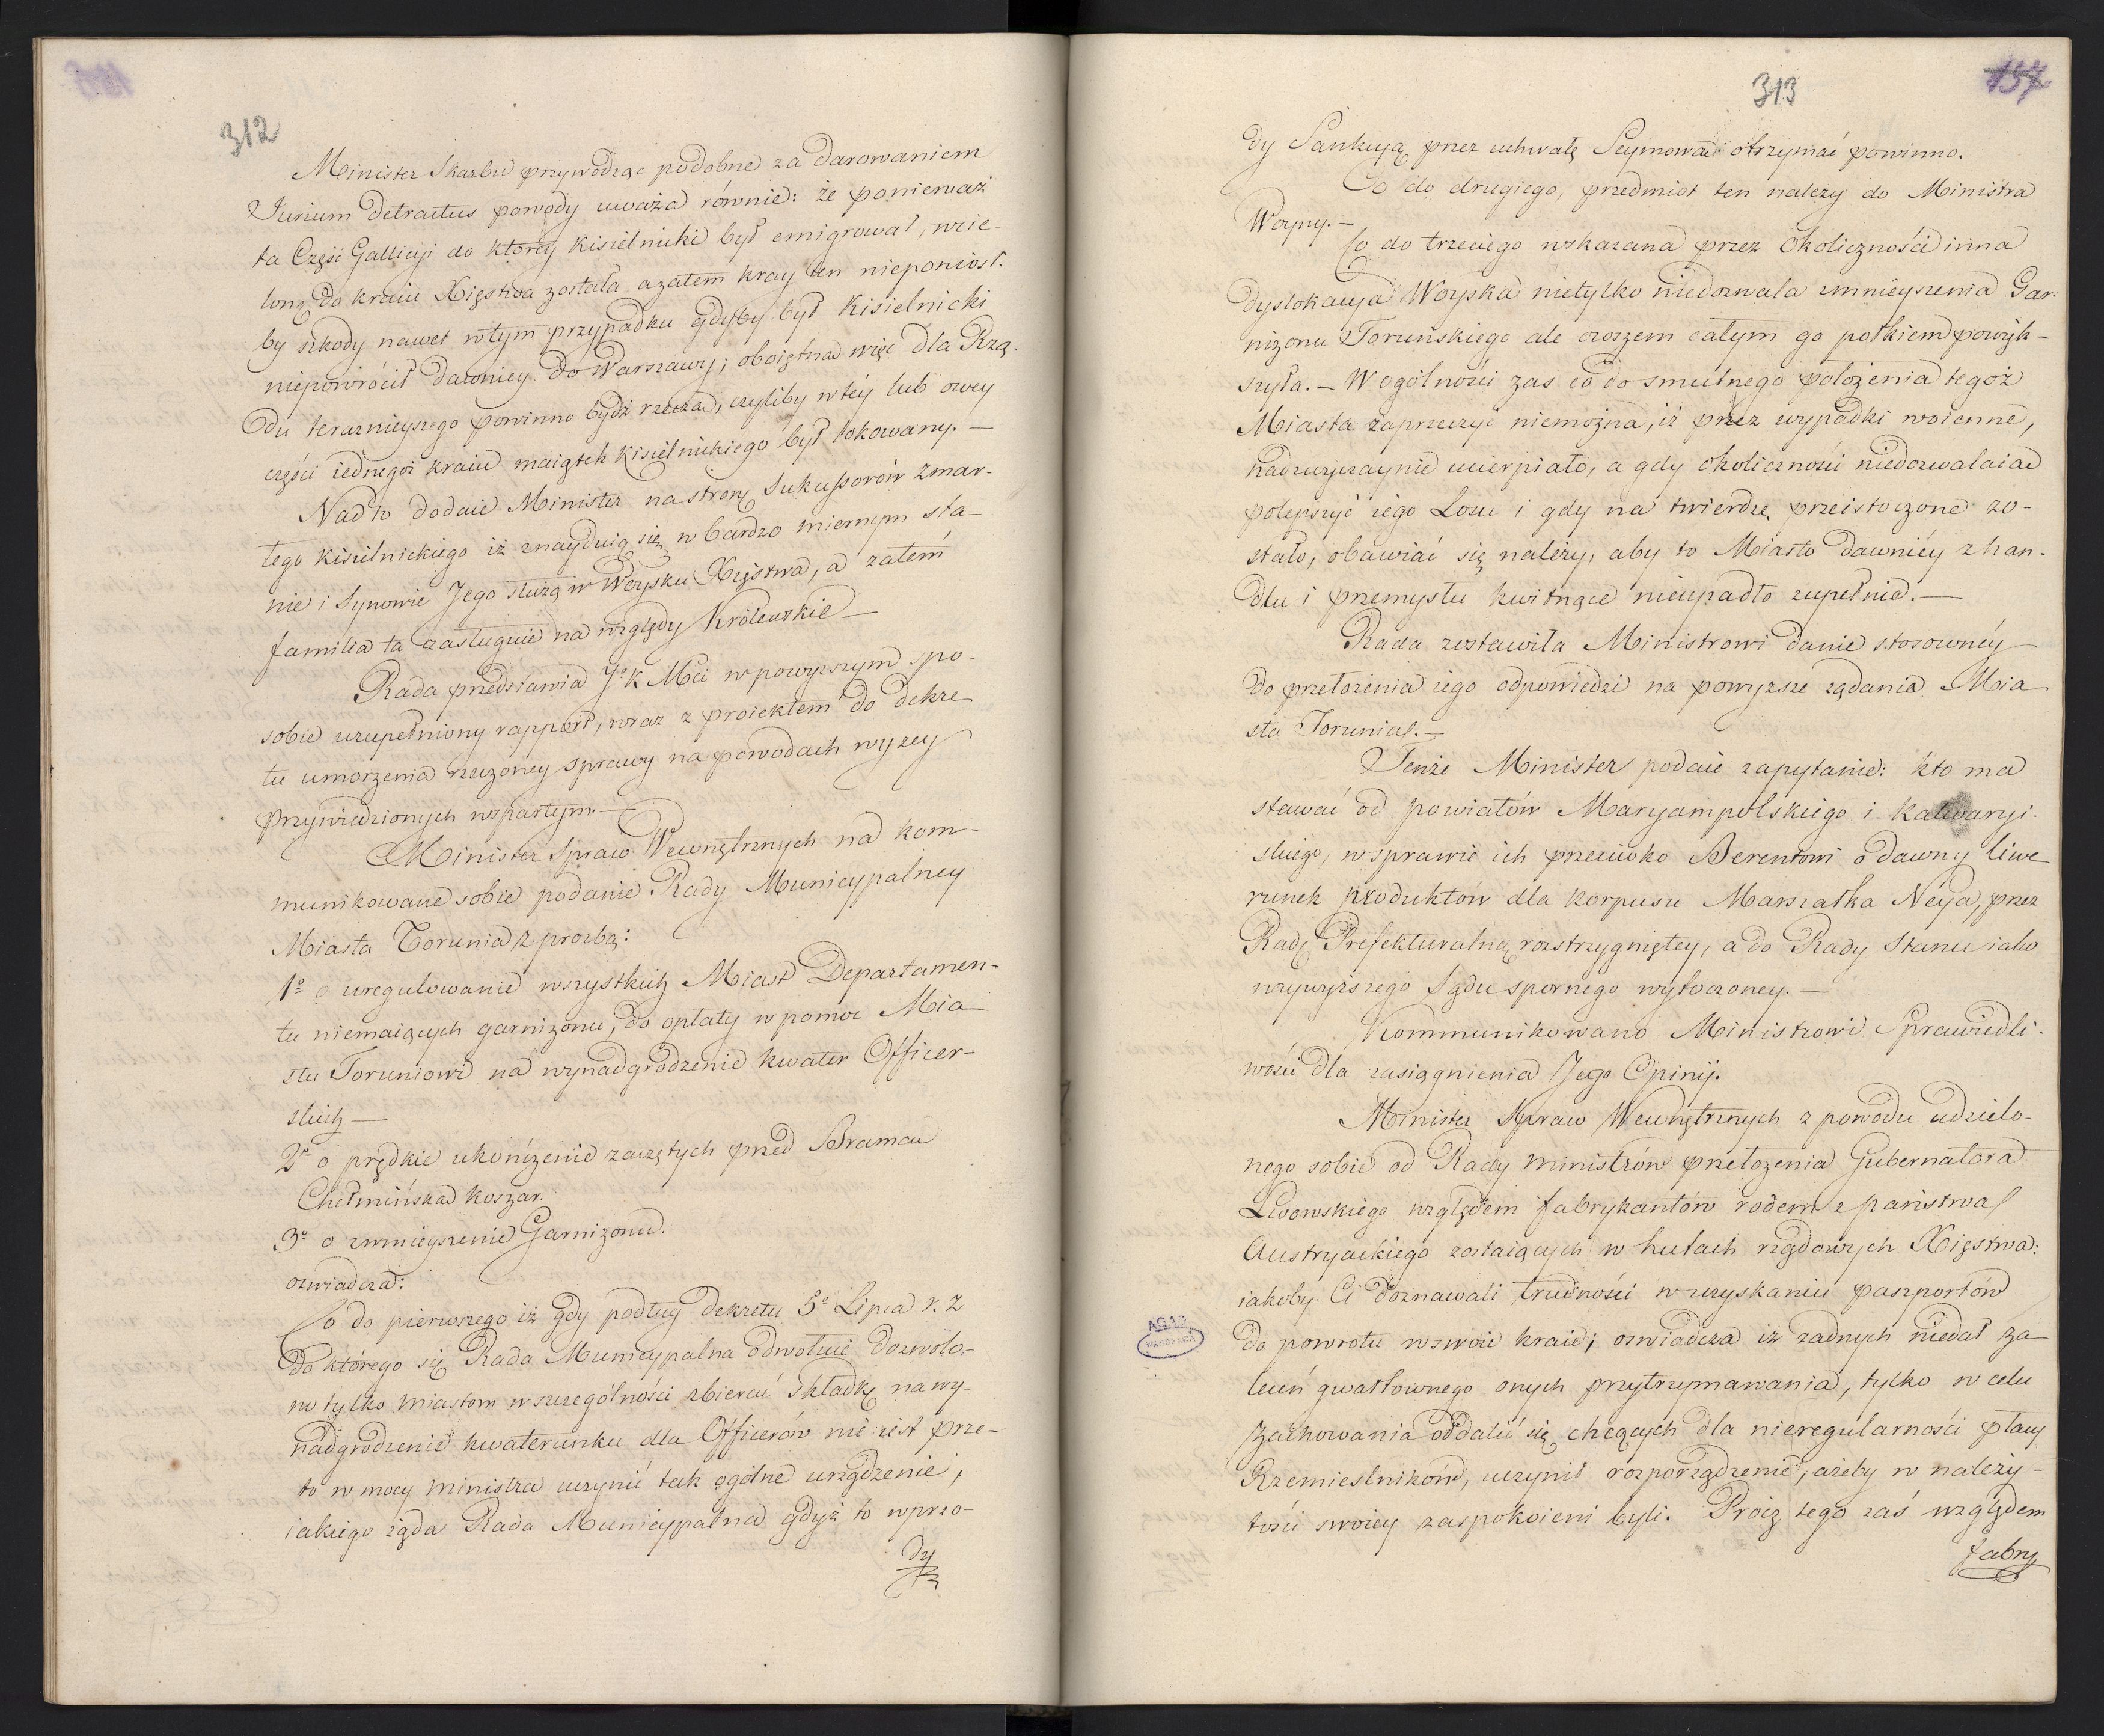 312
Minister Skarbu przywodząc podobne za darowaniem
Iurium detractus powody uważa równie: że ponieważ
ta Część Gallicyi do którey Kisielnicki był emigrował, wcie-
loną do kraiu Xięstwa została a zatem kray ten nieponiosł-
by szkody nawet w tym przypadku gdyby był Kisielnicki
niepowrócił dawniey do Warszawy; oboiętna więc dla Rzą-
du teraznieyszego powinno bydź rzecza, czyliby w téy lub owey
części iednegoż kraiu maiątek Kisielnickiego był lokowany. —
Nadto dodaie Minister na stronę Sukcessorów zmar-
łego Kisielnickiego iż znayduią się w bardzo miernym sta-
nie i Synowie Jego służą w Woysku Xięstwa, a zatém
familia ta zasługuie na względy Królewskie —
Rada przedstawia J° K Mci w powyższym spo-
sobie uzupełniony rapport, wraz z proiektem do dekre
tu umorzenia rzeczoney sprawy na powodach wyzey
przywiedzionych wspartym. —
Minister Spraw Wewnętrznych na kom-
munikowane sobie podanie Rady Municypalney
Miasta Torunia z prozbą:
1° o uregulowanie wszystkich Miast Departamen-
tu niemaiących garnizonu, do opłaty w pomoc Mia
stu Toruniowi na wynadgrodzenie kwater Officer-
skich —
2° o prędkie ukończenie zaczętych przed Bramą
Chełmińską Koszar.
3° o zmnieyszenie Garnizonu.
oswiadcza:
Co do pierwszego iż gdy podług dekretu 5° Lipca r. z
do którego się Rada Municypalna odwołuie dozwolo-
no tylko miastom w szczególności zbierać składkę na wy-
nadgrodzenie kwaterunku dla Officerów nie iest prze-
to w mocy Ministra uczynić tak ogólne urządzenie,
iakiego żąda Rada Municypalna gdyż to wprzo-
dy
313
157
dy Sankcyą przez uchwałę Seymową otrzymać powinno.
Co do drugiego, przedmiot ten nalezy do Ministra
Woyny. —
Co do trzeciego wskazana przez okoliczności inna
dyslokacya Woyska nietylko niedozwala zmnieyszenia Gar-
nizonu Toruńskiego ale owszem całym go połkiem powięk-
szyła. — W ogólności zas co do smutnego położenia tegoż
Miasta zaprzeczyć niemożna, iż przez wypadki woienne,
nadzwyczaynie ucierpiało, a gdy okoliczności niedozwalaią
polepszyć iego Losu i gdy na twierdzę przeistoczone zo-
stało, obawiać się należy, aby to Miasto dawniéy z han-
dlu i przemysłu kwitnące nieupadło zupełnie. —
Rada zostawiła Ministrowi danie stosownéy
do przełożenia iego odpowiedzi na powyższe żądania Mia
sta Torunia. —
Tenże Minister podaie zapytanie: kto ma
stawać od powiatów Maryampolskiego i Kalwaryi-
skiego, w sprawie ich przeciwko Berentowi o dawny liwe
runek produktów dla korpusu Marszałka Neya, przez
Radę Prefekturalną rozstrzygniętey, a do Rady Stanu iako
naywyższego Sądu spornego wytoczoney. —
Kommunikowano Ministrowi Sprawiedli-
wości dla zasiągnienia Jego Opinij.
Minister Spraw Wewnętrznych z powodu udzielo-
nego sobie od Rady Ministrów przełożenia Gubernatora
Lwowskiego względem fabrykantów rodem z państwa
Austryackiego zostaiących w hutach rządowych Xięstwa:
iakoby Ci doznawali trudności w uzyskaniu paszportów
do powrotu w swoie kraie; oswiadcza iż żadnych niedał za
leceń gwałtownego onych przytrzymawania, tylko w celu
zachowania oddalić się chcących dla nieregularności płacy
Rzemieslników, uczynił rozporządzenie, ażeby w należy-
tości swoiey zaspokoieni byli. Prócz tego zaś względem
fabry
AGAD
WARSZAWA